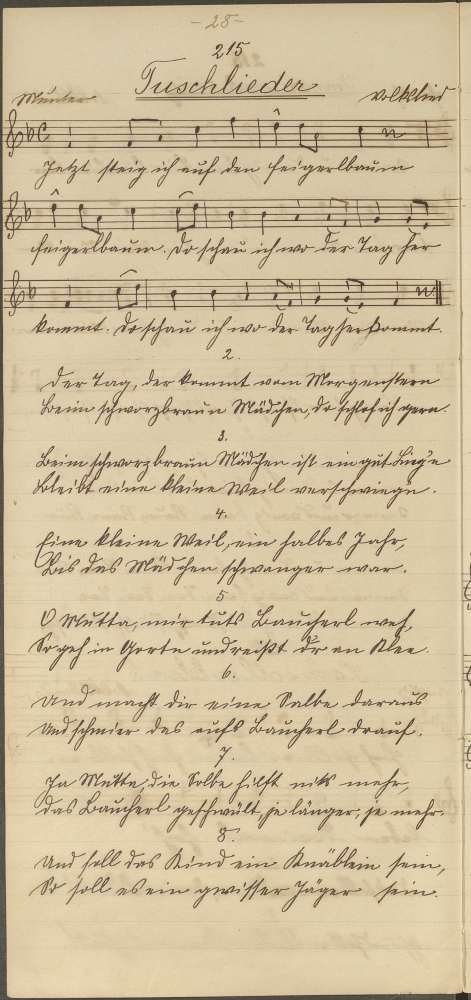 - 28 -
215
Tuschlieder
Munter Volkslied
Jetzt steig ich auf den Feigerlbaum
Feigerlbaum. Da schau ich wo der Tag her
kommt. Da schau ich wo der Tag herkommt.
2.
Der Tag, der kommt vom Morgenstern
Beim schworzbraun Mädchen, da schlof ich gern.
3.
Beim schworzbraun Mädchen ist ein gut
Bleibt eine kleine Weil verschwiegn.
4.
Eine kleine Weil, ein halbes Jahr,
Bis das Mädchen schwanger war.
5
O Mutta, mir tuts Baucherl weh,
So geh in Gorte und reißt dr an Klee.
6.
Und macht dir eine Salbe daraus
Und schmier das aufs Baucherl drauf.
7.
Ja Mutta, die Solbe hilft niks mehr,
das Baucherl geschwült, je länger, je mehr.
8.
Und soll das Kind ein Knäblein sein,
So soll es ein gwisser Jäger sein.